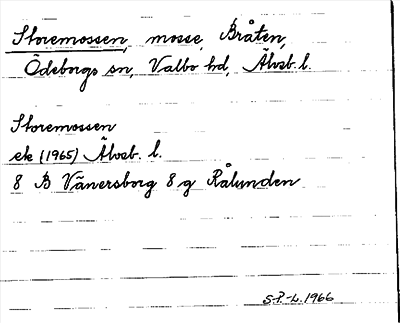 Storemossen, mosse, Bråten,
Ödeborgs sn, Valbo hd, Älvsb. l.
Storemossen
ek (1965) Älvsb. l.
8 B Vänersborg 8 g Rålunden
S.P.-L. 1966